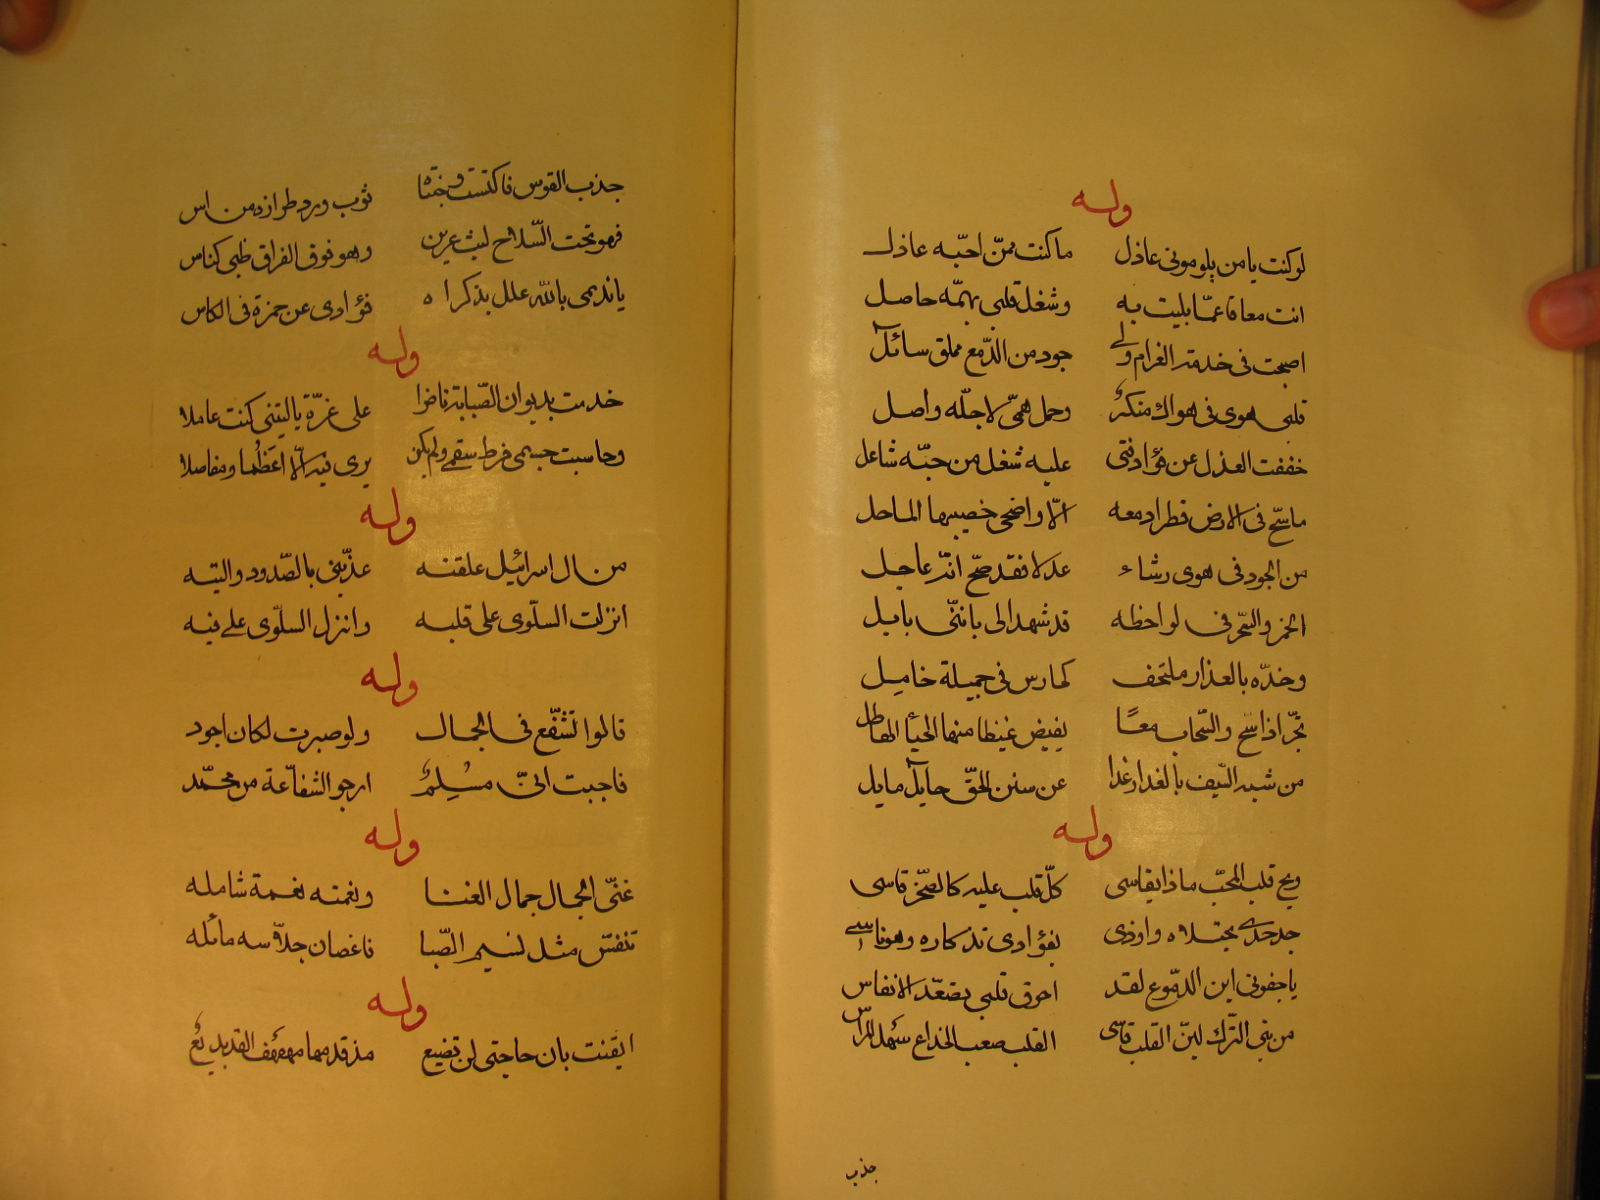 وله
لو كنت يا من يلومونى عاذل ما كنت ممّن احبّه عاذل
انت معافا عمّا بليت به وشغل قلبى بهمّه حاصل
اصبحت فى خدمة الغرام ولى جود من الدّمع مملق سائل
قلبى هوى فى هواك منكرٌ وحمل همىّ لاجلّه واصل
خففت العذل عن فؤاد فتى عليه شغل من حبّه شاغل
ماسحّ فى الارض قطر ادمعه الّا واضحى خصيبها الماحل
من الجود فى هوى رشاء عدلا فقد صحّ انّه عاجل
الخمر والسّحر فى لواحظه قد شهدا لى بانّنى بابل
وخدّه بالعذار ملتحف كحارس فى جميلة خامل
اذا سحّ والسّحاب معًا يفيض غيظا منها الحيأ الهاطل
من شبه السّيف بالغدار غدا عن سنن الحقّ حايلٓ مايل
وله
ويح قلب المحبّ ماذا يقاسى كلّ قلب عليه كالصّخر قاسى
بفؤادى تذكاره وهو ناسى
يا جفونى اين الدمّوع لقد احرق قلبى تصعّد الانفاس
من بنى التّرك ليّن القلب قاسّى القلب صعب الخداع سهل المراس
جذب
جذب القوس فاكتست وجنتاه ثوب ورد طرازه من اس
فهو تحت السّلاح ليث عرين وهو فوق الفراق ظبى كناس
يا نديمى باللّه علل بذكراه فؤادى عن حمزة فى الكاس
وله
خدمت بديوان الصّبابة ناضرا على غرّة ياليتنى كنت عاملا
وحاسبت جسمى فرط سقمى ولم يكن يرى فيه الّا اعظُما ومفاصلا
وله
من ال اسرائيل علقته عذّبنى بالصّدود والتيه
انزلت السلوى على قلبه وانزل السلّوى على فيه
وله
قالوا تَشفّع فى الجمال ولو صبرت لكان اجود
فاجبت انىّ مسْلِمٌ ارجو الشفاّعة من محمّد
وله
غنّى الجمال جمال الغنا ونغمته نغمة شامله
تنفسّ مثل نسيم الصّبا فاغصان جلاّسه مائله
وله
ايقنت بان حاجتى لن تضيع مذ قدمها مهفهف القد بديع